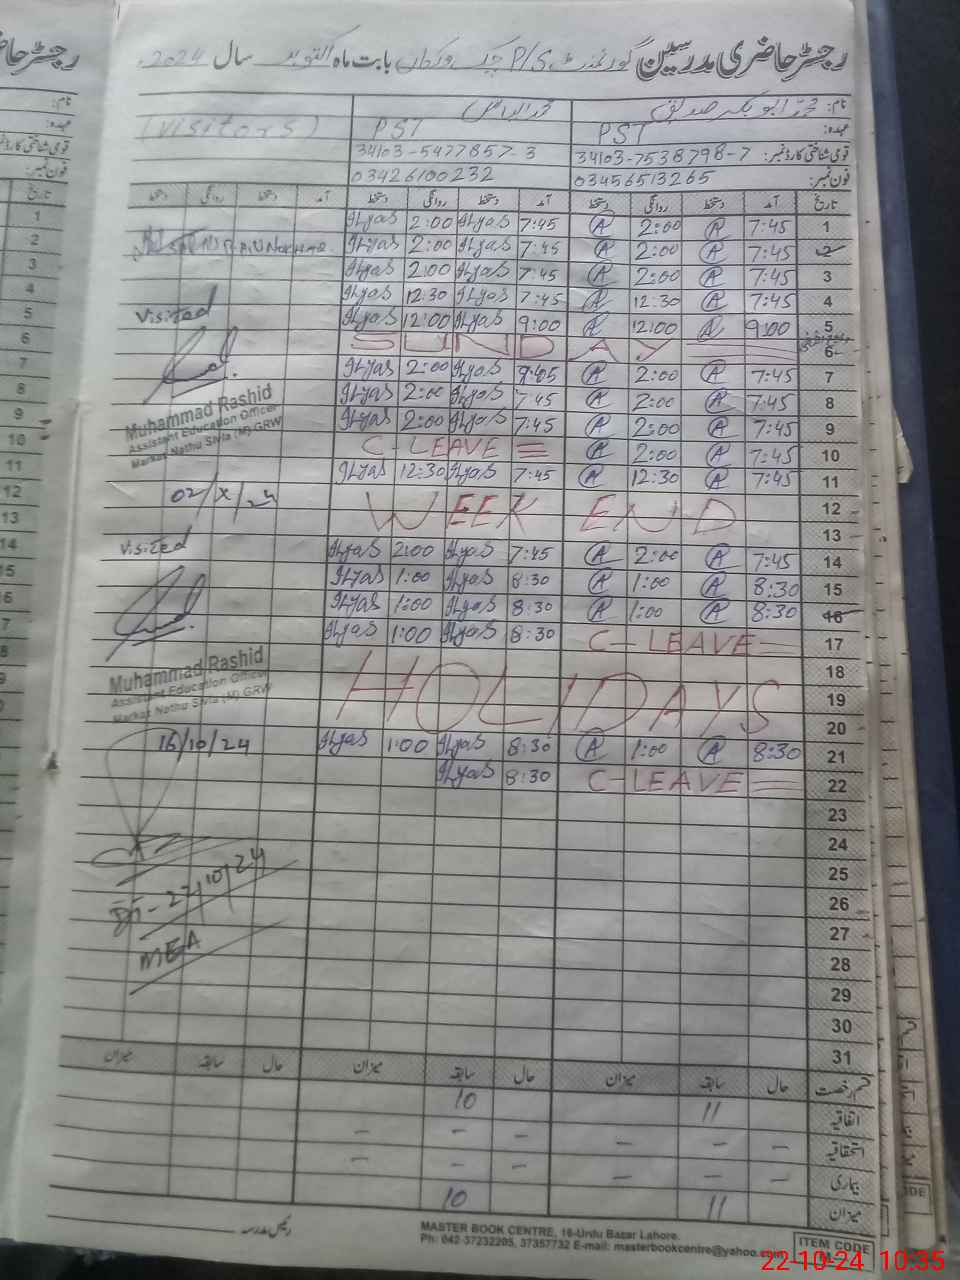 رجسٹر حاضری مدرسین گورنمنٹ P/S چک ورکاں بابت ماہ اکتوبر سال 2024ء
نام: محمد ابوبکر صدیق محمد الیاس
عہدہ: PST PST (VISITORS)
قومی شناختی کارڈ نمبر: 34103-7538798-7 34103-5477857-3
فون نمبر: 03456513265 03426100232
تاریخ آمد دستخط روانگی دستخط آمد دستخط روانگی دستخط آمد دستخط روانگی دستخط
1 7:45 A 2:00 A 7:45 Ilyas 2:00 Ilyas
2 7:45 A 2:00 A 7:45 Ilyas 2:00 Ilyas
3 7:45 A 2:00 A 7:45 Ilyas 2:00 Ilyas
4 7:45 A 12:30 A 7:45 Ilyas 12:30 Ilyas
5 9:00 A 12:00 A 9:00 Ilyas 12:00 Ilyas
6 SUNDAY
7 7:45 A 2:00 A 7:45 Ilyas 2:00 Ilyas
8 7:45 A 2:00 A 7:45 Ilyas 2:00 Ilyas
9 7:45 A 2:00 A 7:45 Ilyas 2:00 Ilyas
10 7:45 A 2:00 A C-LEAVE
11 7:45 A 12:30 A 7:45 Ilyas 12:30 Ilyas
12 WEEK END
13
14 7:45 A 2:00 A 7:45 Ilyas 2:00 Ilyas
15 8:30 A 1:00 A 8:30 Ilyas 1:00 Ilyas
16 8:30 A 1:00 A 8:30 Ilyas 1:00 Ilyas
17 C-LEAVE 8:30 Ilyas 1:00 Ilyas
18
19 HOLIDAYS
20
21 8:30 A 1:00 A 8:30 Ilyas 1:00 Ilyas
22 C-LEAVE 8:30 Ilyas
23
24
25
26
27
28
29
30
31
Visited
Muhammad Rashid
Assistant Education Officer
Markaz Nathu Sivia (M) GRW
02/X/24
Visited
Muhammad Rashid
Assistant Education Officer
Markaz Nathu Sivia (M) GRW
16/10/24
22/10/24
MEA
قسم رخصت حال سابقہ میزان حال سابقہ میزان حال سابقہ میزان
اتفاقیہ 11 10
استحقاقیہ - - - - - -
بیماری - - - - - -
میزان 11 10
رئیس مدرسہ
MASTER BOOK CENTRE, 16-Urdu Bazar Lahore.
Ph: 042-37232205, 37357732 E-mail: masterbookcentre@yahoo.com
ITEM CODE
22-10-24 10:35